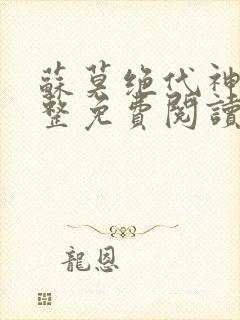 蘇莫绝代神
整免費閱讀
龍恩